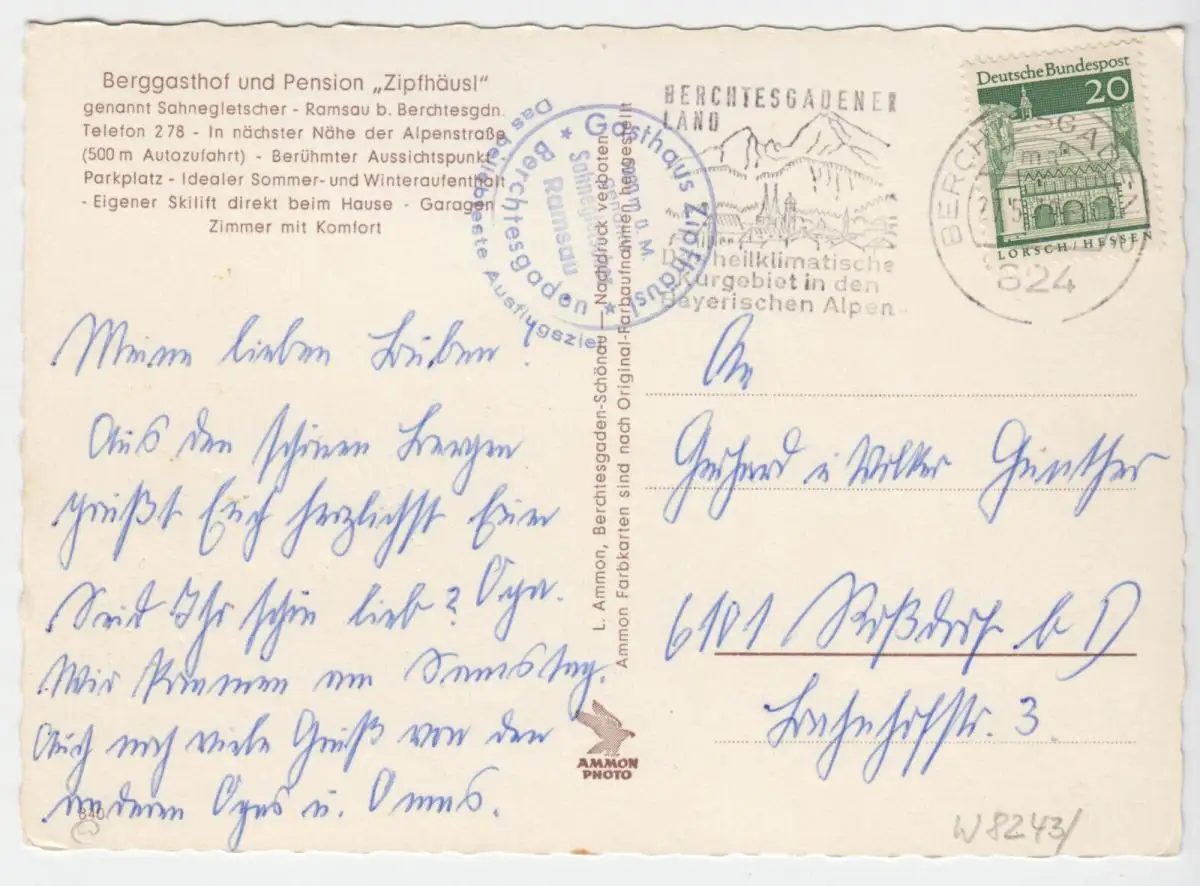 Berggasthof und Pension „Zipfhäusl"
genannt Sahnegletscher - Ramsau b. Berchtesgdn.
Telefon 278 - In nächster Nähe der Alpenstraße
(500 m Autozufahrt) - Berühmter Aussichtspunkt
Parkplatz - Idealer Sommer- und Winteraufenthalt
- Eigener Skilift direkt beim Hause - Garagen
Zimmer mit Komfort
Gasthaus Zipfhäusl
Berchtesgaden
Ramsau
Sahnegletscher
genannt
m ü. M.
Das beliebteste Ausflugsziel
BERCHTESGADENER
LAND
Das heilklimatische
Kurgebiet in den
Bayerischen Alpen
BERCHTESGADEN
824
Deutsche Bundespost
20
LORSCH/HESSEN
Meine lieben Buben!
Aus den schönen Bergen
grüßt Euch herzlichst Euer
Opa.
Seid Ihr schön lieb?
Wir kommen am Samstag.
Auch noch viele Grüße von den
anderen Opas u. Omas.
840
L. Ammon, Berchtesgaden-Schönau — Nachdruck verboten
Ammon Farbkarten sind nach Original-Farbaufnahmen hergestellt
AMMON
PHOTO
An
Gerhard u Volker Günther
6101 Roßdorf b D
Bahnhofstr. 3
W8243/